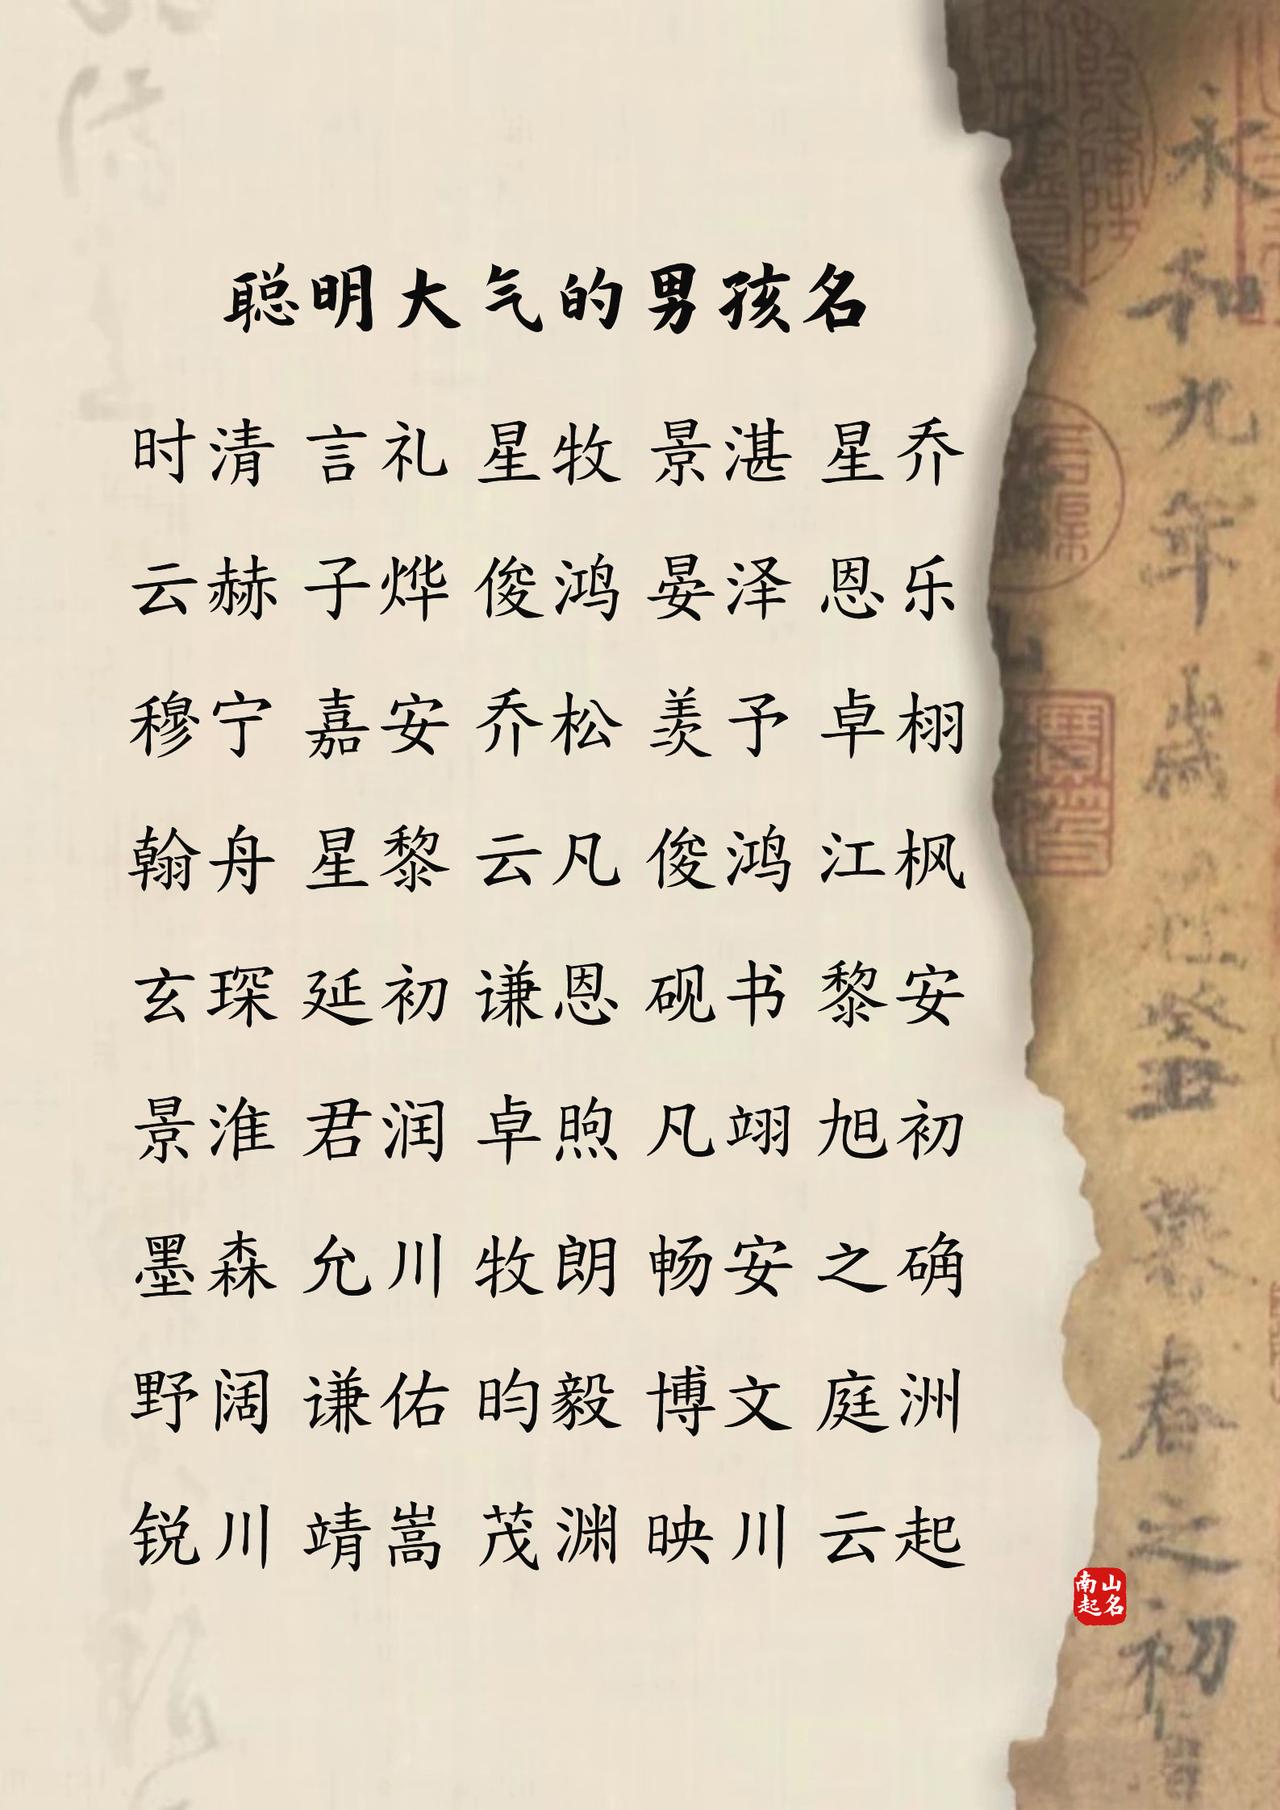 聪明大气的男孩名
时清 言礼 星牧 景湛 星乔
云赫 子烨 俊鸿 晏泽 恩乐
穆宁 嘉安 乔松 羡予 卓栩
翰舟 星黎 云凡 俊鸿 江枫
玄琛 延初 谦恩 砚书 黎安
景淮 君润 卓煦 凡翊 旭初
墨森 允川 牧朗 畅安 之确
野阔 谦佑 昀毅 博文 庭洲
锐川 靖嵩 茂渊 映川 云起
南山
起名
永和九年岁在癸丑暮春之初